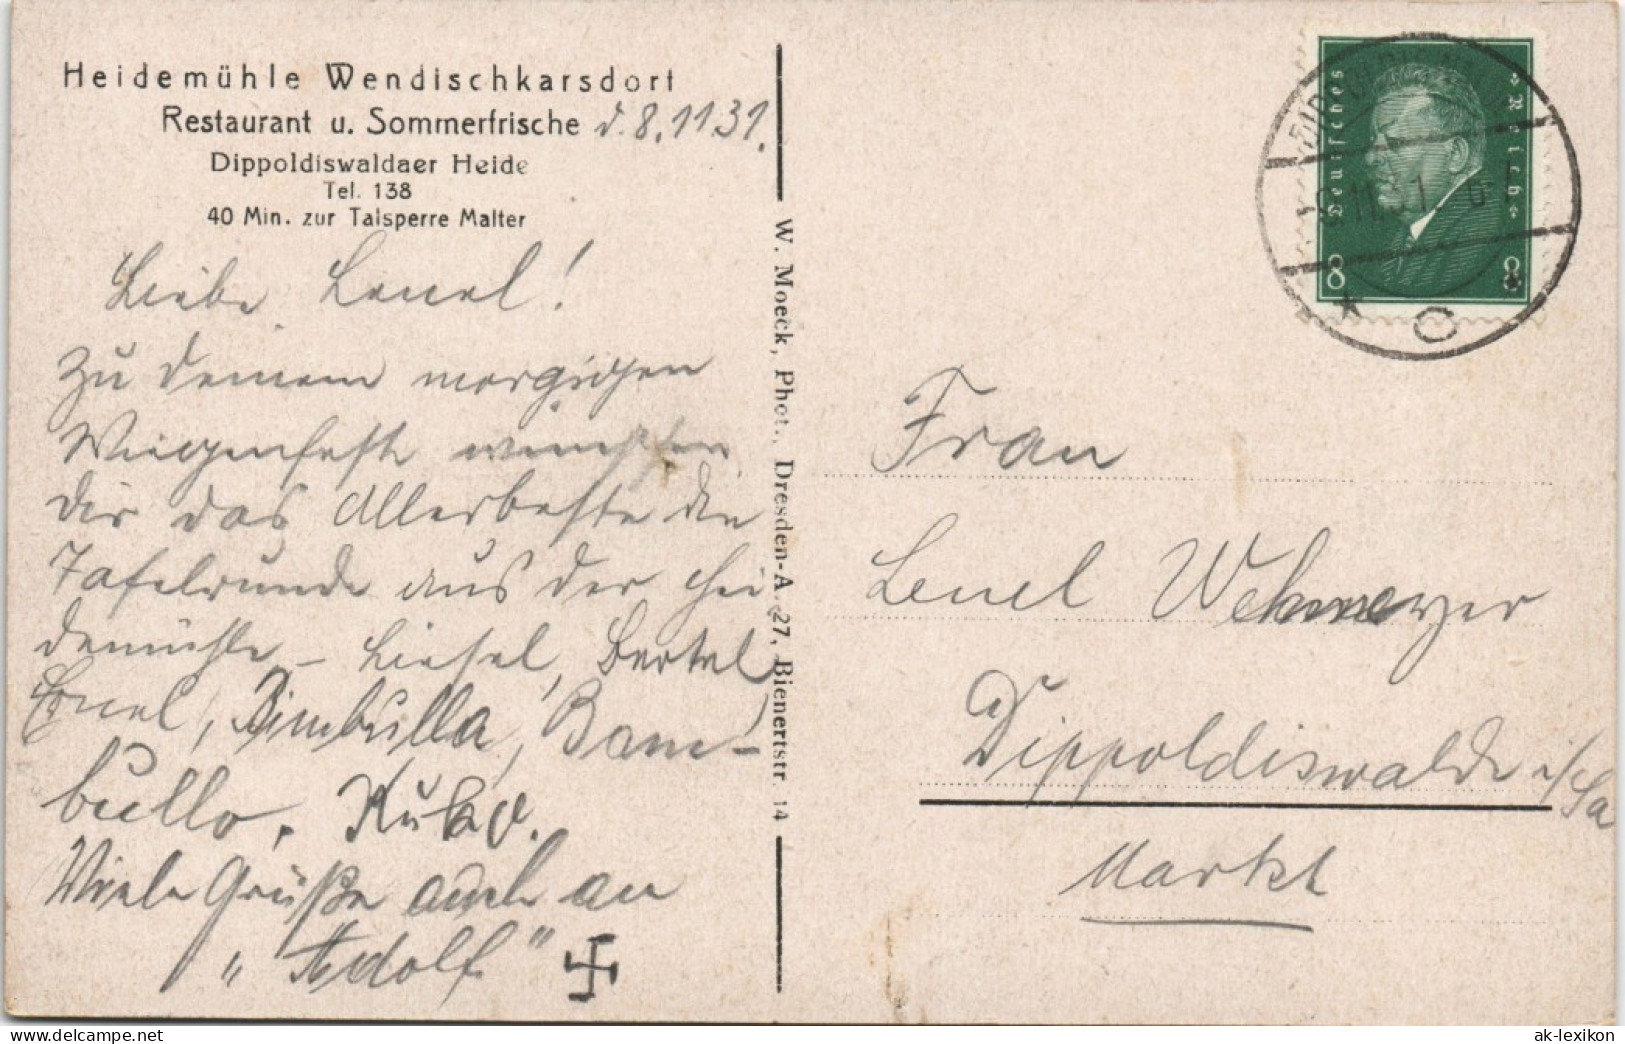 Heidemühle Wendischkarsdorf
Restaurant u. Sommerfrische d. 8.11 31.
Dippoldiswaldaer Heide
Tel. 138
40 Min. zur Talsperre Malter
Liebe Lenel!
Zu deinem morgigen
Wiegenfeste wünschen
dir das Allerbeste die
Tafelrunde aus der Hei
demühle – Liesel, Bertel
Ernel, Bimbulla, Bam-
bullo,
Viele Grüße auch an
„Adolf" 卐
W. Moeck, Phot., Dresden-A. 27, Bienertstr. 14
Deutsches Reich
8 8
11.31
C
Frau
Lenel Wehmeyer
Dippoldiswalde i/Sa
Markt
www.delcampe.net
ak-lexikon